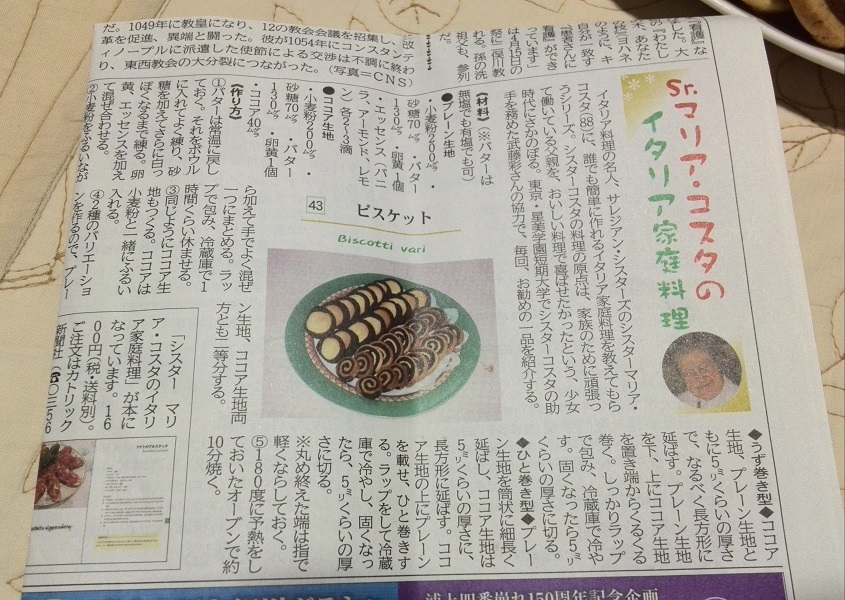 だ。1049年に教皇になり、12の教会会議を招集し、改
革を促進、異端と闘った。彼が1054年にコンスタンテ
ィノープルに派遣した使節による交渉は不調に終わ
り、東西教会の大分裂につながった。(写真=CNS)
Sr.マリア・コスタの
イタリア家庭料理
イタリア料理の名人、サレジアン・シスターズのシスターマリア・
コスタ(88)に、誰でも簡単に作れるイタリア家庭料理を教えてもら
うシリーズ。シスターコスタの料理の原点は、家族のために頑張っ
て働いている父親を、おいしい料理で喜ばせたかったという、少女
時代にさかのぼる。東京・星美学園短期大学でシスターコスタの助
手を務めた武藤彩さんの協力で、毎回、お勧めの一品を紹介する。
43
ビスケット
Biscotti vari
《材料》(※バターは
無塩でも有塩でも可)
●プレーン生地
・小麦粉200㌘・
砂糖70㌘・バター
130㌘・卵黄1個
・エッセンス(バニ
ラ、アーモンド、レモ
ン)各2〜3滴
●ココア生地
・小麦粉200㌘・
砂糖70㌘・バター
130㌘・卵黄1個
・ココア40㌘
《作り方》
①バターは常温に戻し
ておく。それをボウル
に入れてよく練り、砂
糖を加えてさらに白っ
ぽくなるまで練る。卵
黄、エッセンスを加え
て混ぜ合わせる。
②小麦粉をふるいなが
ら加えて手でよく混ぜ
一つにまとめる。ラッ
プで包み、冷蔵庫で1
時間くらい休ませる。
③同じようにココア生
地もつくる。ココアは
小麦粉と一緒にふるい
入れる。
④2種のバリエーショ
ンを作るので、プレー
ン生地、ココア生地両
方とも二等分する。
◆うず巻き型◆ココア
生地、プレーン生地と
もに5㍉くらいの厚さ
で、なるべく長方形に
延ばす。プレーン生地
を下、上にココア生地
を置き端からくるくる
巻く。しっかりラップ
で包み、冷蔵庫で冷や
す。固くなったら5㍉
くらいの厚さに切る。
◆ひと巻き型◆プレー
ン生地を筒状に細長く
延ばし、ココア生地は
5㍉くらいの厚さに、
長方形に延ばす。ココ
ア生地の上にプレーン
を載せ、ひと巻きす
る。ラップをして冷蔵
庫で冷やし、固くなっ
たら、5㍉くらいの厚
さに切る。
※丸め終えた端は指で
軽くならしておく。
⑤180度に予熱をし
ておいたオーブンで約
10分焼く。
「シスター マリ
ア・コスタのイタリ
ア家庭料理」が本に
なっています。16
00円(税・送料別)。
ご注文はカトリック
新聞社(☎〇三・56
浦上四番崩れ150周年記念企画